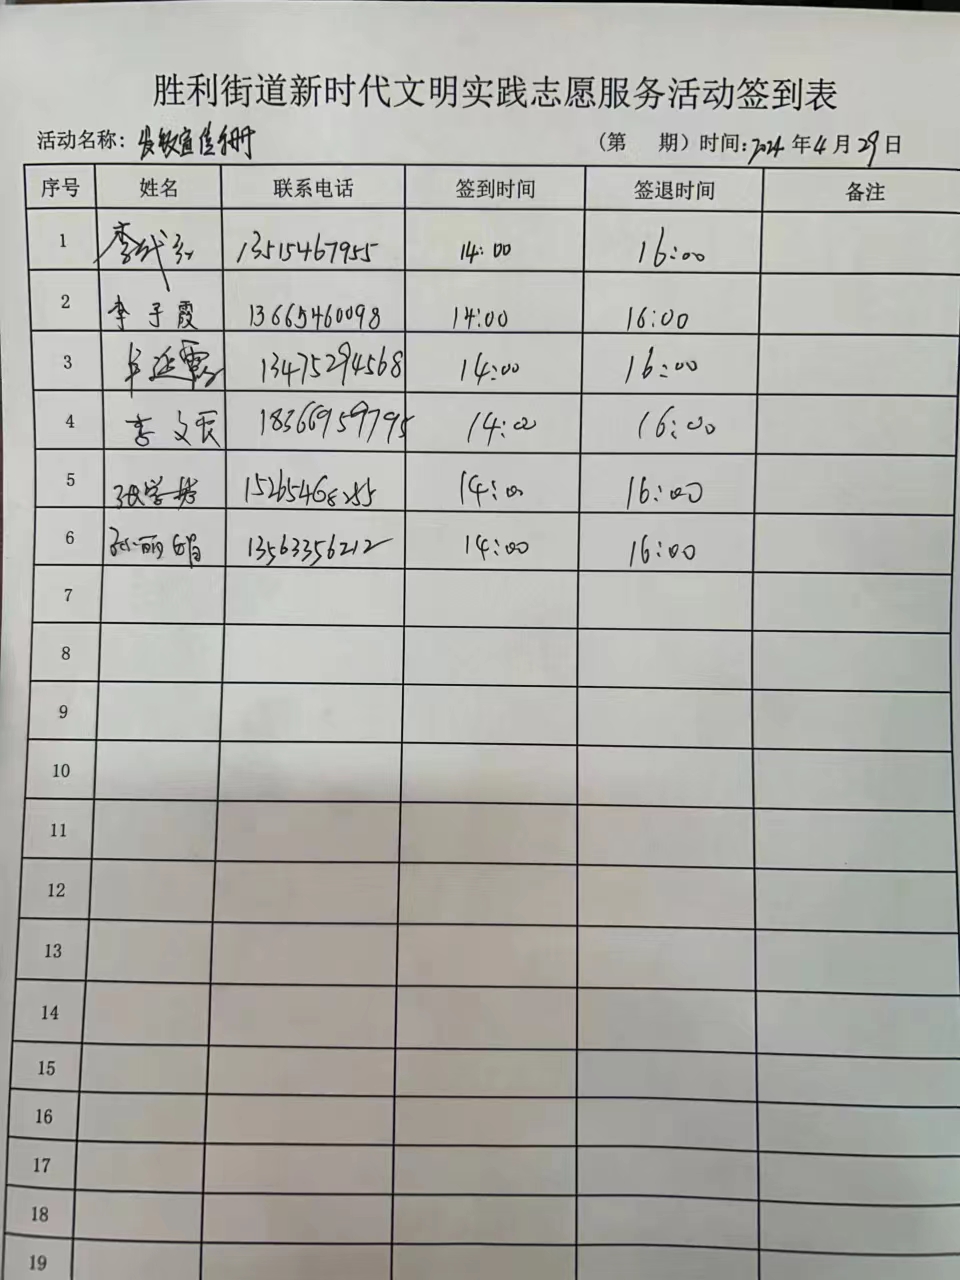 胜利街道新时代文明实践志愿服务活动签到表
活动名称：发放宣传册 (第 期) 时间：2024年4月29日
序号 姓名 联系电话 签到时间 签退时间 备注
1 李 13515467955 14:00 16:00
2 李子霞 13665460098 14:00 16:00
3 延霞 13475294568 14:00 16:00
4 李文 18366959795 14:00 16:00
5 张学 15265468255 14:00 16:00
6 孙丽娟 13563356212 14:00 16:00
7
8
9
10
11
12
13
14
15
16
17
18
19